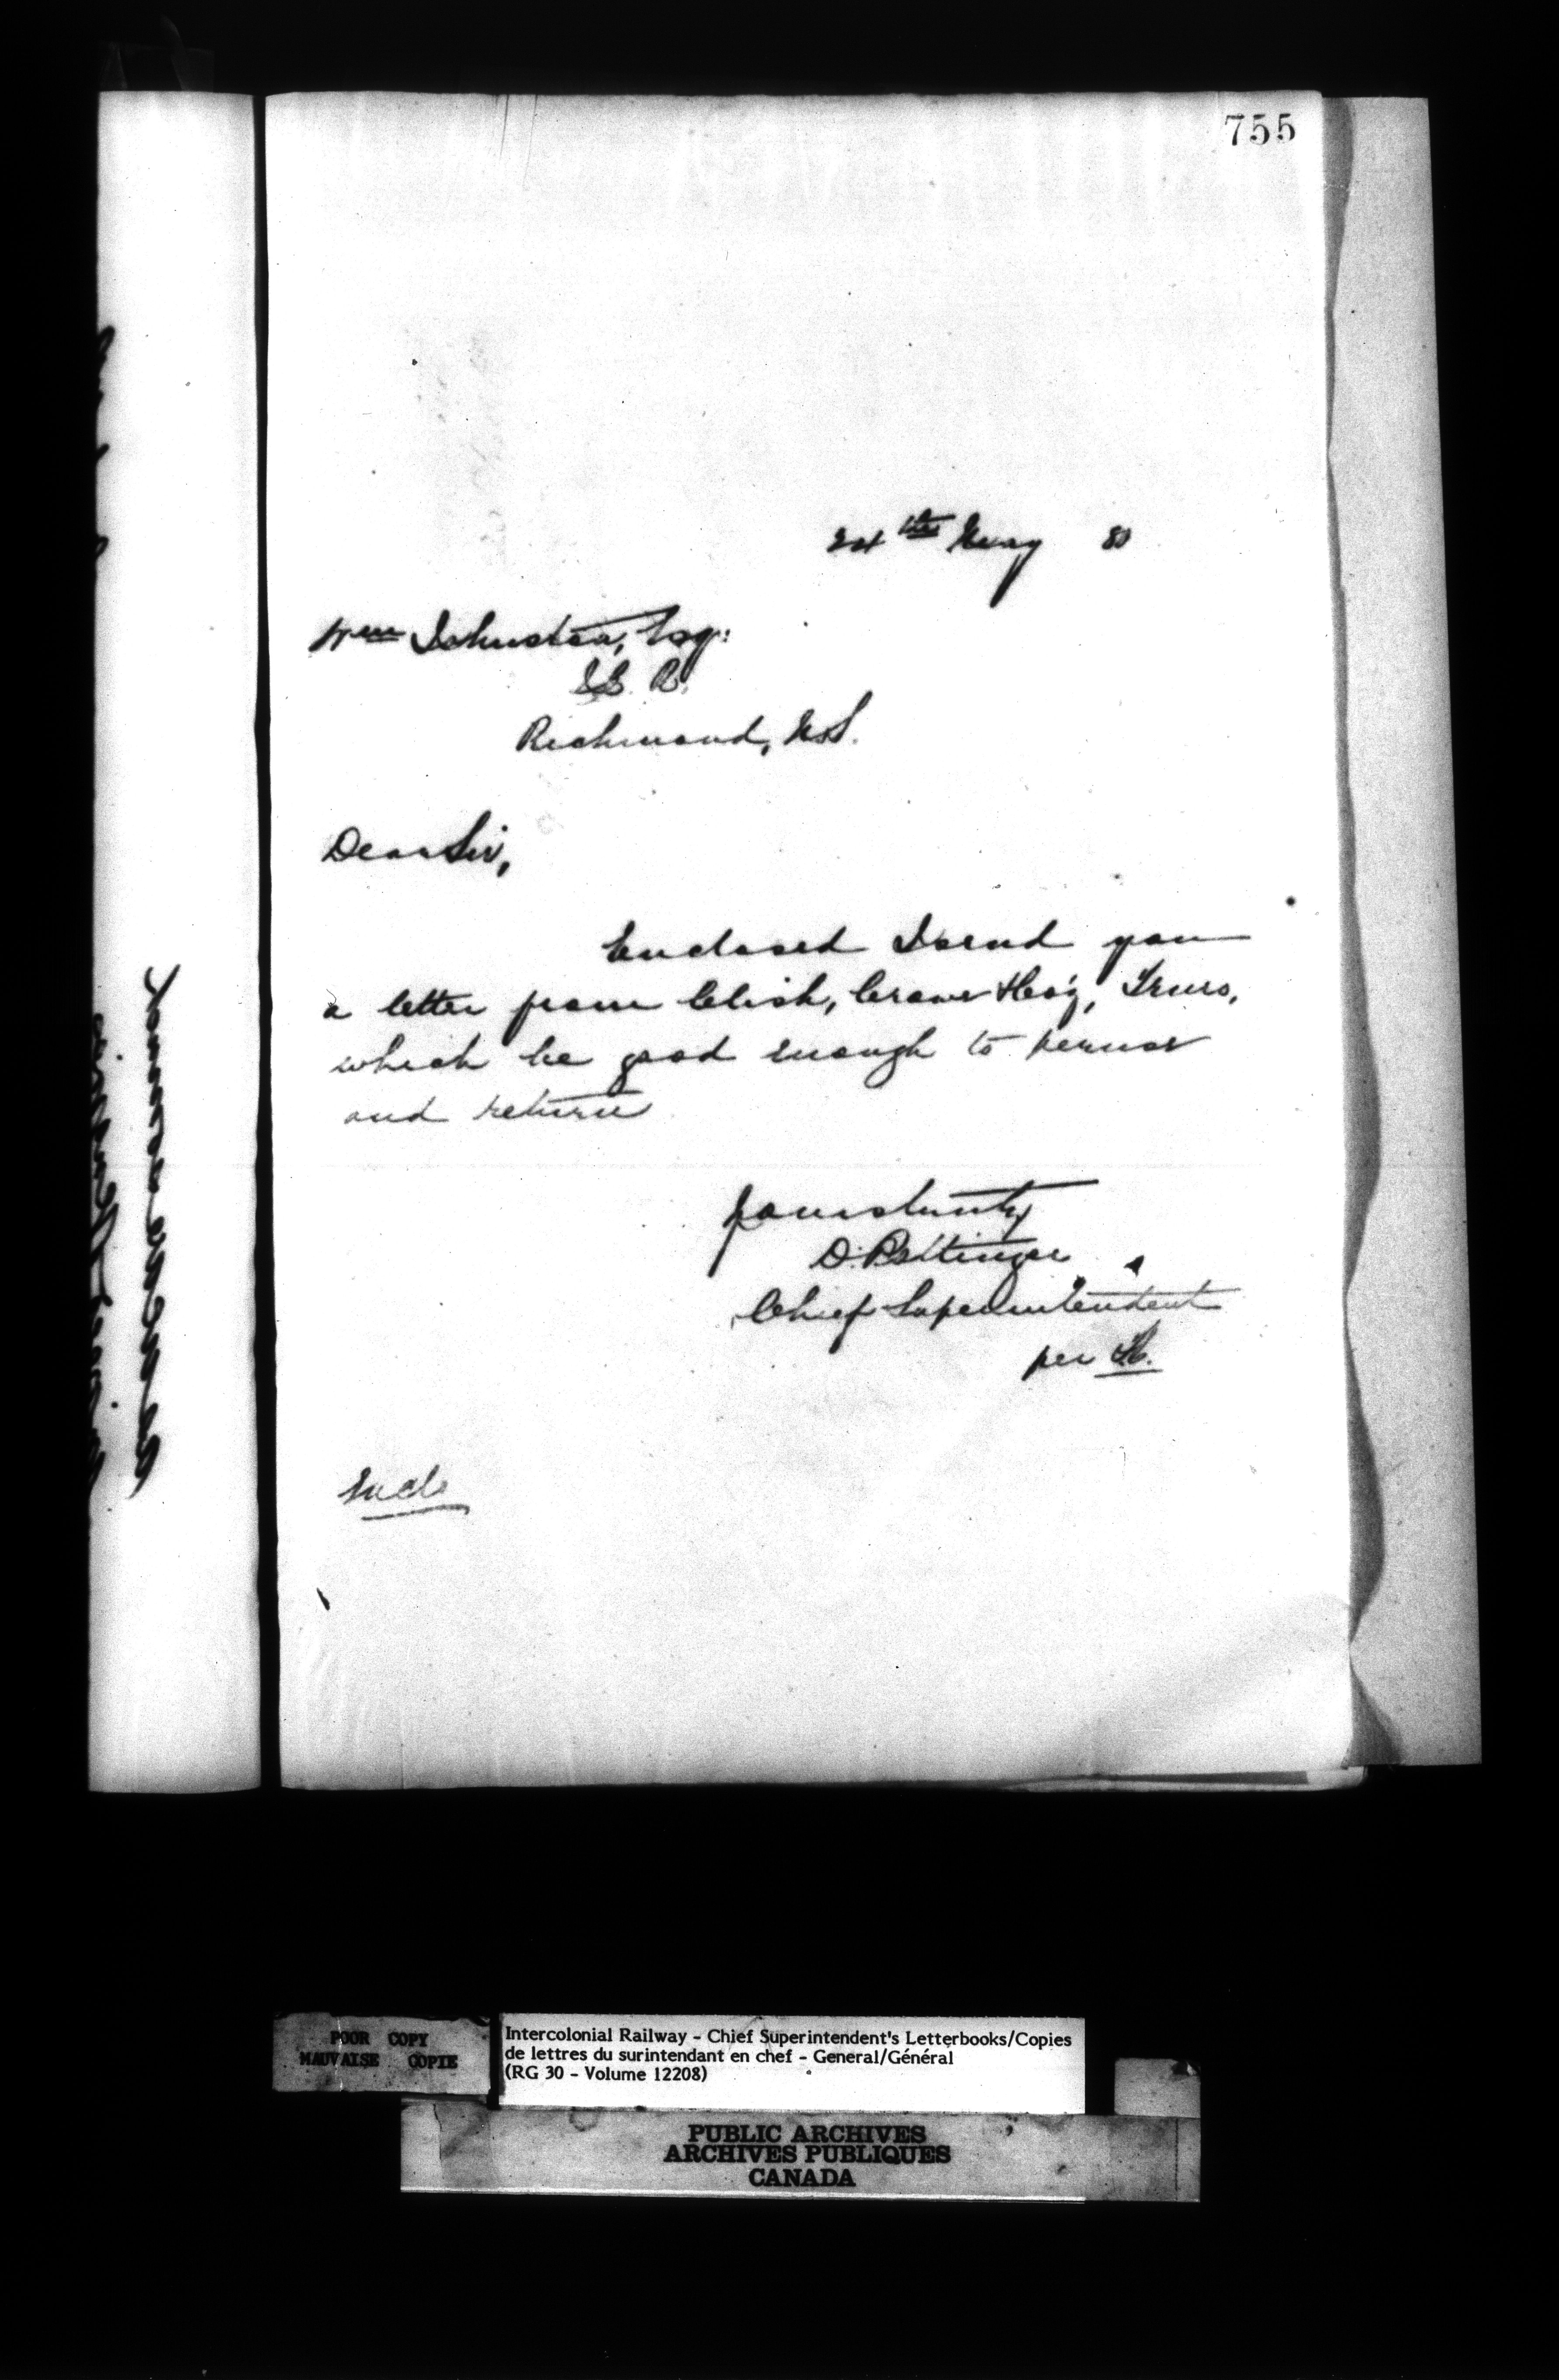 755
24th May 80
Wm Johnston, Esq:
I.C.R.
Richmond, N.S.
Dear Sir,
Enclosed I send you
a letter from Clish, Crowe &Co'y, Truro,
which be good enough to peruse
and return
Yours truly
D. Pottinger
Chief Superintendent
per
Encl.
POOR COPY
MAUVAISE COPIE
Intercolonial Railway - Chief Superintendent's Letterbooks/Copies
de lettres du surintendant en chef - General/Général
(RG 30 - Volume 12208)
PUBLIC ARCHIVES
ARCHIVES PUBLIQUES
CANADA